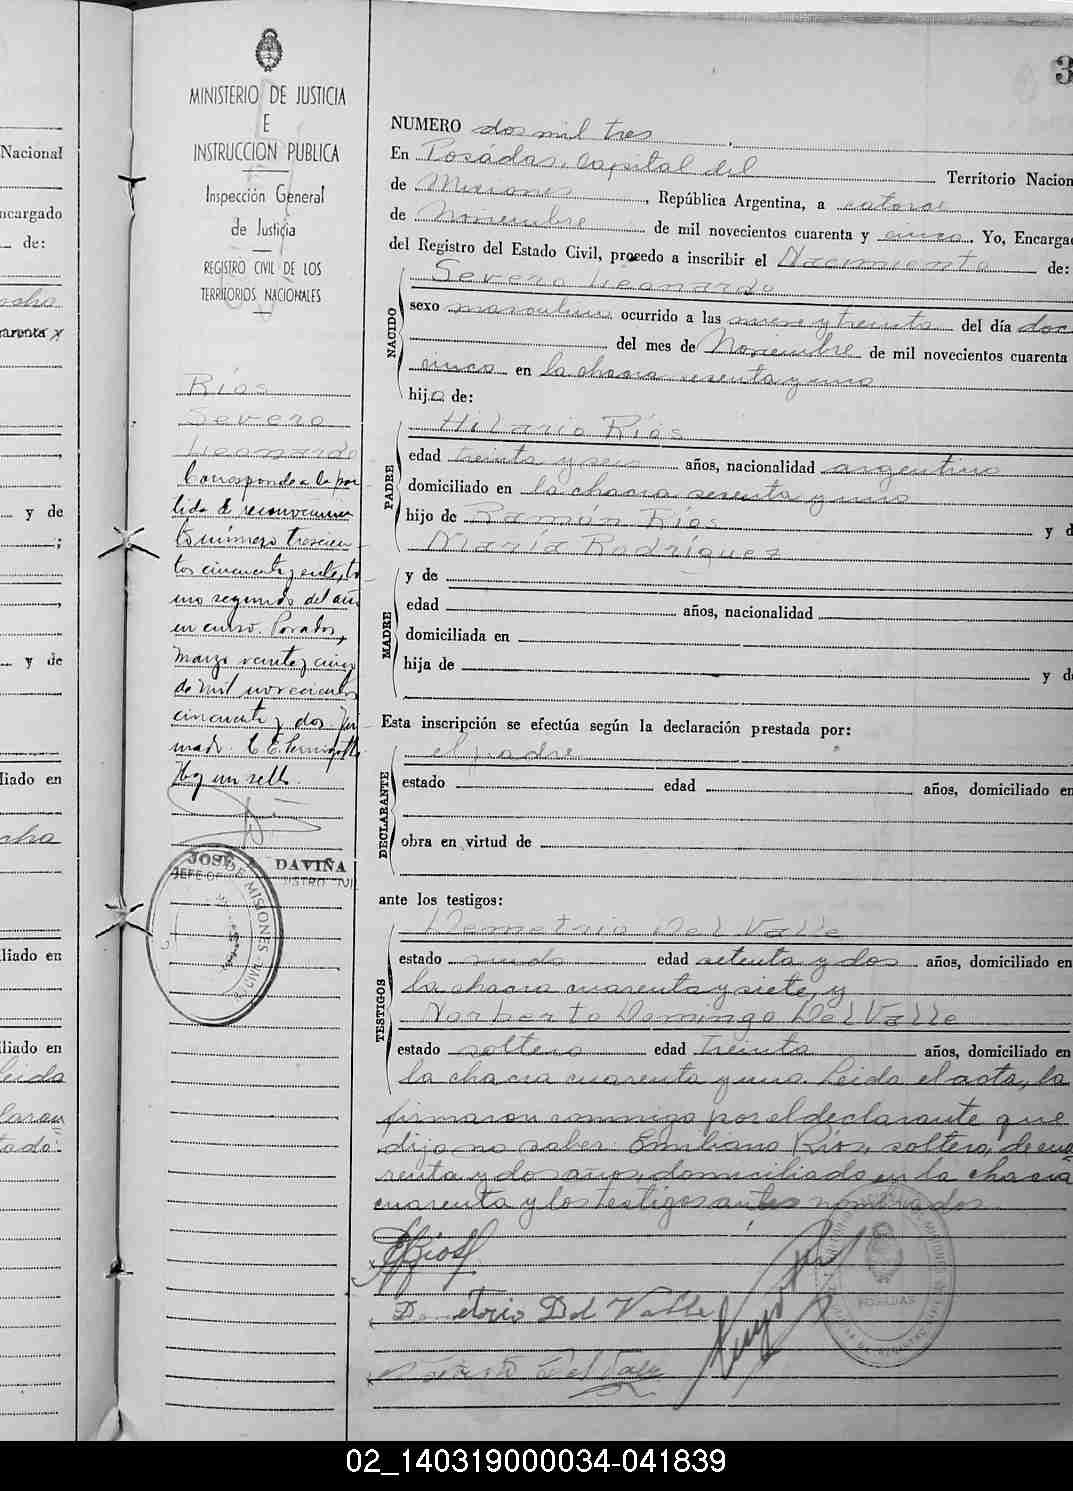 MINISTERIO DE JUSTICIA
E
INSTRUCCION PUBLICA
Inspección General
de Justicia
REGISTRO CIVIL DE LOS
TERRITORIOS NACIONALES
Ríos
Severo
Leonardo
Corresponde a la par
tida de reconocimien
to número trescien
tos cincuenta y siete, to
mo segundo del año
en curso. Posadas,
Marzo veinte y cinco
de mil novecientos
cincuenta y dos. Fir
mado.
Hay un sello.
JOSÉ DAVIÑA
JEFE OF
DE MISIONES
Nacional
ncargado
de:
arenta y
y de
y de
liado en
cha
liado en
liado en
leida
laran
3
NUMERO dos mil tres
En Posadas, Capital del Territorio Nacion
de Misiones, República Argentina, a catorce
de Noviembre de mil novecientos cuarenta y cinco. Yo, Encarga
del Registro del Estado Civil, procedo a inscribir el Nacimiento de:
NACIDO
Severo Leonardo
sexo masculino ocurrido a las nueve y treinta del día doc
del mes de Noviembre de mil novecientos cuarenta
cinco en la chacra sesenta y uno
hijo de:
PADRE
Hilario Ríos
edad treinta y seis años, nacionalidad argentino
domiciliado en la chacra sesenta y uno
hijo de Ramón Ríos y d
María Rodríguez
MADRE
y de
edad años, nacionalidad
domiciliada en
hija de y d
Esta inscripción se efectúa según la declaración prestada por:
DECLARANTE
el padre
estado edad años, domiciliado en
obra en virtud de
ante los testigos:
TESTIGOS
Demetrio Del Valle
estado viudo edad setenta y dos años, domiciliado en
la chacra cuarenta y siete, y
Norberto Domingo Del Valle
estado soltero edad treinta años, domiciliado en
la chacra cuarenta y uno. Leida el acta, la
firmaron conmigo por el declarante que
dijo no saber: Emiliano Ríos, soltero, de cua
renta y dos años, domiciliado en la chacra
cuarenta y los testigos antes nombrados.
Demetrio Del Valle
POSADAS
02_140319000034-041839